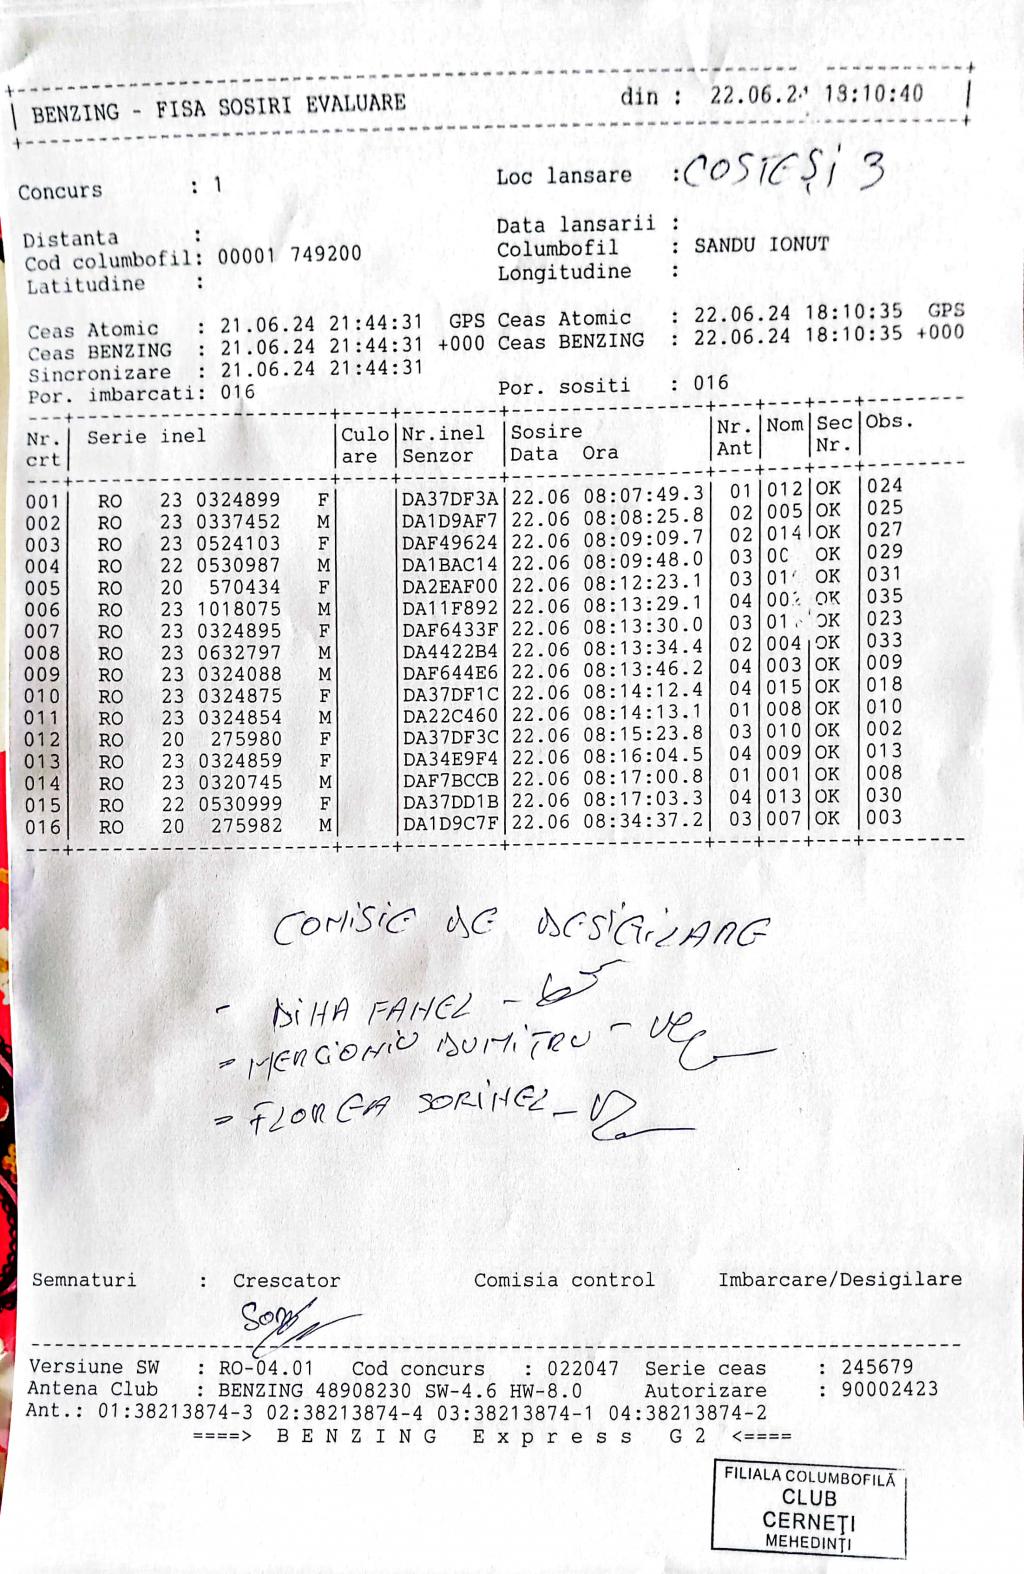 BENZING - FISA SOSIRI EVALUARE din : 22.06.2 18:10:40
Concurs : 1 Loc lansare : COSTEȘI 3
Distanta : Data lansarii :
Cod columbofil: 00001 749200 Columbofil : SANDU IONUT
Latitudine : Longitudine :
Ceas Atomic : 21.06.24 21:44:31 GPS Ceas Atomic : 22.06.24 18:10:35 GPS
Ceas BENZING : 21.06.24 21:44:31 +000 Ceas BENZING : 22.06.24 18:10:35 +000
Sincronizare : 21.06.24 21:44:31
Por. imbarcati: 016 Por. sositi : 016
Nr. Serie inel Culo Nr.inel Sosire Nr. Nom Sec Obs.
crt are Senzor Data Ora Ant Nr.
001 RO 23 0324899 F DA37DF3A 22.06 08:07:49.3 01 012 OK 024
002 RO 23 0337452 M DA1D9AF7 22.06 08:08:25.8 02 005 OK 025
003 RO 23 0524103 F DAF49624 22.06 08:09:09.7 02 014 OK 027
004 RO 22 0530987 M DA1BAC14 22.06 08:09:48.0 03 OK 029
005 RO 20 570434 F DA2EAF00 22.06 08:12:23.1 03 OK 031
006 RO 23 1018075 M DA11F892 22.06 08:13:29.1 04 OK 035
007 RO 23 0324895 F DAF6433F 22.06 08:13:30.0 03 OK 023
008 RO 23 0632797 M DA4422B4 22.06 08:13:34.4 02 004 OK 033
009 RO 23 0324088 M DAF644E6 22.06 08:13:46.2 04 003 OK 009
010 RO 23 0324875 F DA37DF1C 22.06 08:14:12.4 04 015 OK 018
011 RO 23 0324854 M DA22C460 22.06 08:14:13.1 01 008 OK 010
012 RO 20 275980 F DA37DF3C 22.06 08:15:23.8 03 010 OK 002
013 RO 23 0324859 F DA34E9F4 22.06 08:16:04.5 04 009 OK 013
014 RO 23 0320745 M DAF7BCCB 22.06 08:17:00.8 01 001 OK 008
015 RO 22 0530999 F DA37DD1B 22.06 08:17:03.3 04 013 OK 030
016 RO 20 275982 M DA1D9C7F 22.06 08:34:37.2 03 007 OK 003
COMISIE DE DESIGILARE
- FLOREA SORINEL -
Semnaturi : Crescator Comisia control Imbarcare/Desigilare
Versiune SW : RO-04.01 Cod concurs : 022047 Serie ceas : 245679
Antena Club : BENZING 48908230 SW-4.6 HW-8.0 Autorizare : 90002423
Ant.: 01:38213874-3 02:38213874-4 03:38213874-1 04:38213874-2
====> B E N Z I N G E x p r e s s G 2 <====
FILIALA COLUMBOFILĂ
CLUB
CERNEŢI
MEHEDINŢI